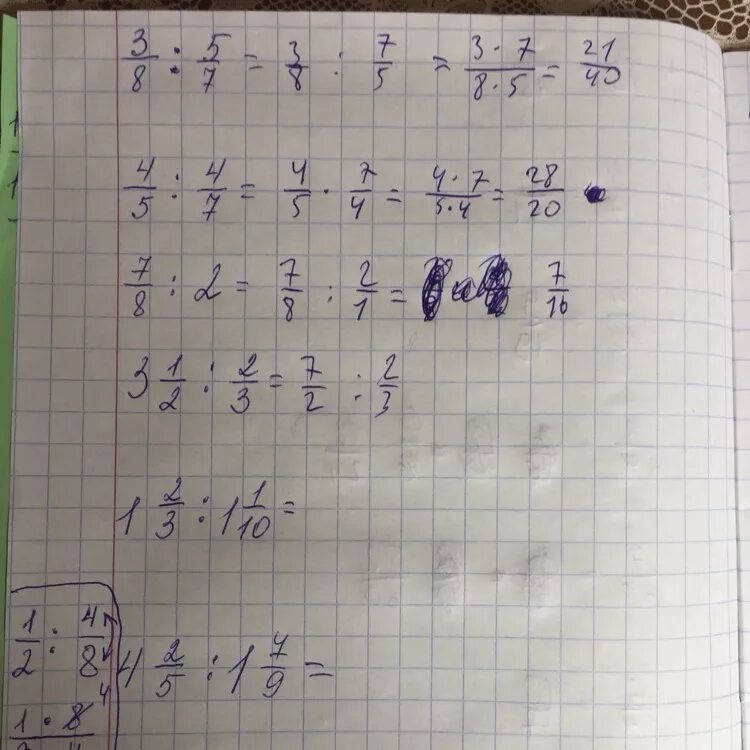 3/8 : 5/7 = 3/8 : 7/5 = 3·7/8·5 = 21/40
4/5 : 4/7 = 4/5 · 7/4 = 4·7/5·4 = 28/20
7/8 : 2 = 7/8 : 2/1 = 7/16
3 1/2 : 2/3 = 7/2 : 2/3
1 2/3 : 1 1/10 =
4 2/5 : 1 7/9 =
1/2 : 4/8
4
1·8